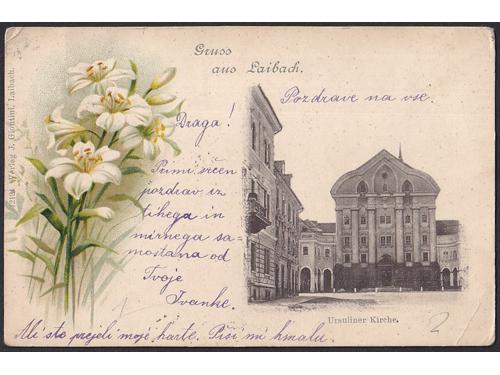 Gruss
aus Laibach.
Pozdrave na vse.
Draga!
Primi srčen
pozdrav iz
tihega in
mirnega sa-
mostana od
Tvoje
Ivanke.
Ali ste prejeli moje karte. Piši mi kmalu.
Ursuliner Kirche.
2
Verlag J. Giontini, Laibach.